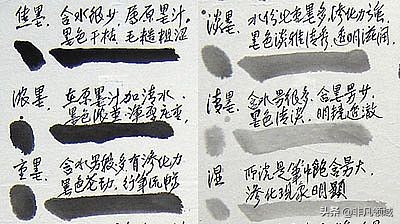 焦墨
含水很少,属原墨汁
墨色干枯、毛糙粗涩
浓墨
在原墨汁加清水
墨色浓重
重墨
含水男很多有渗化力
墨色苍劲、行笔流畅
淡墨
水份比重墨多,渗化力
墨色淡雅, 透明滋润
清墨
含水男很多、含墨男少
墨色清淡、明镜透澈
湿
所谓是笔中饱含男大
渗化现象明顯
头条 @非凡领域